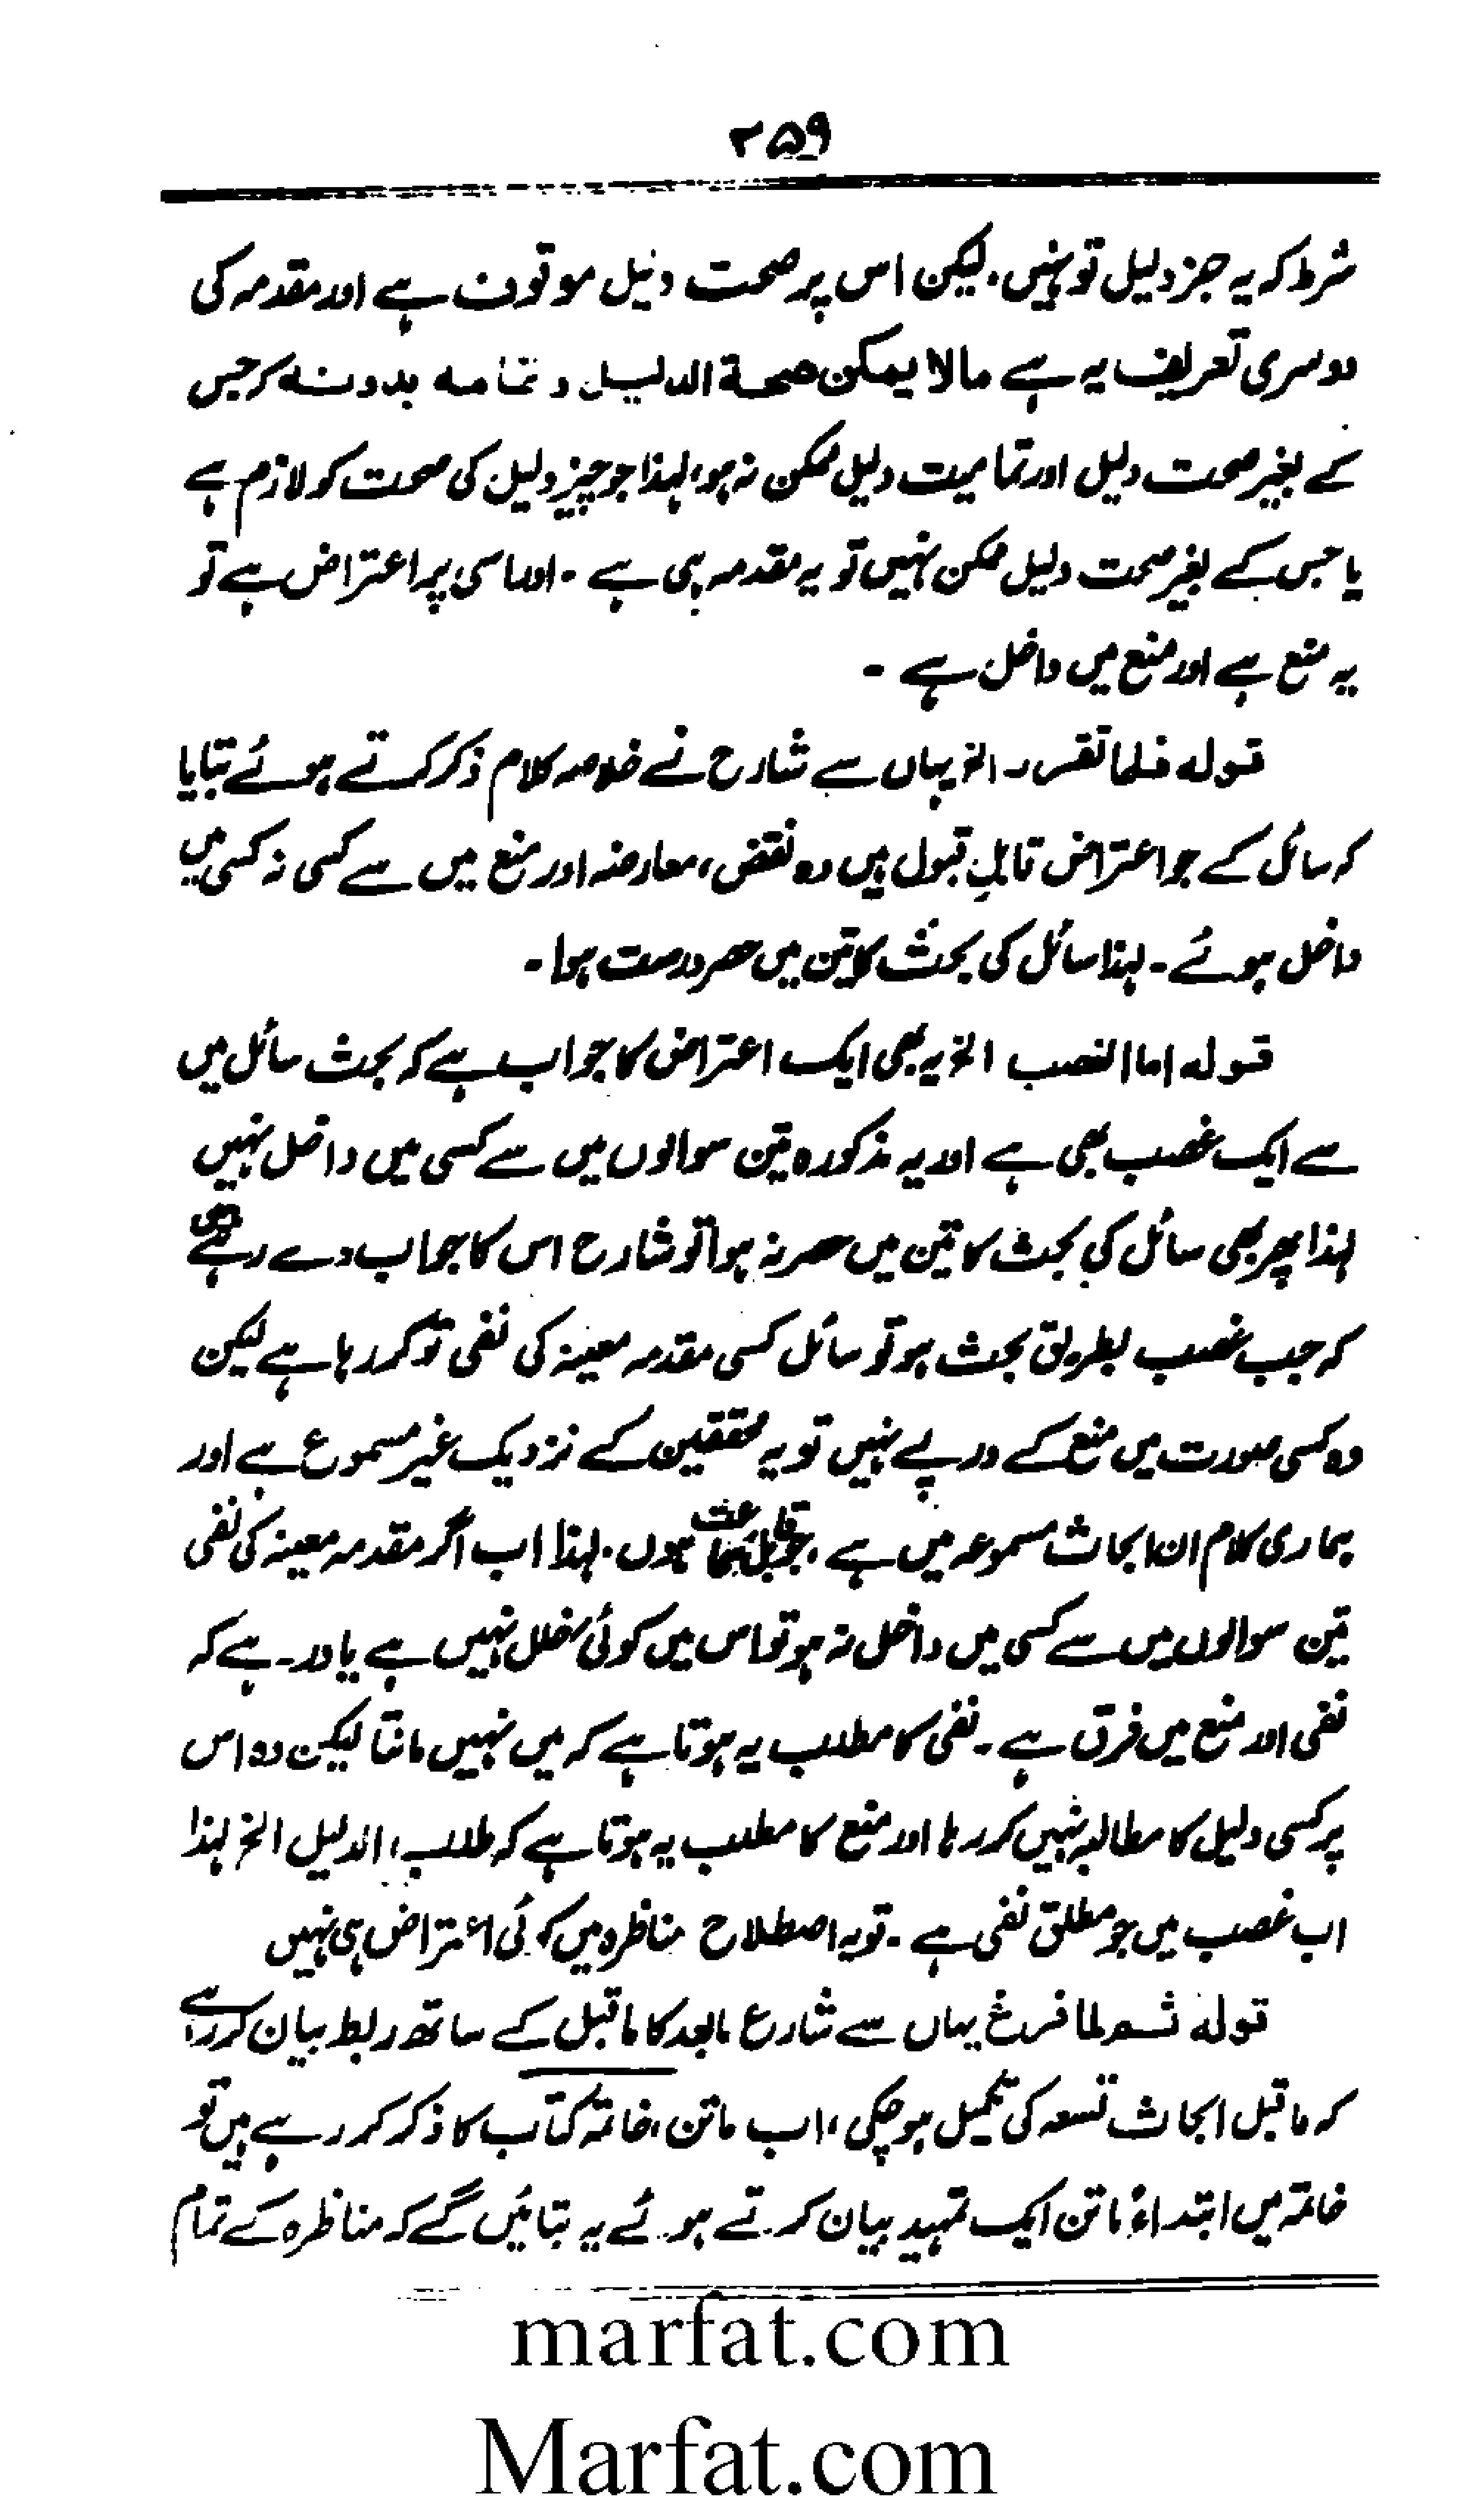 ۲۵۹
شرط کہ یہ جز دلیل تو نہیں، لیکن اس پر صحت دلیل موقوف ہے اور مقدمہ کی
دوسری تعریف یہ ہے مالا یمکن صحة الدلیل و تمامہ بدونہ کہ جس
کے بغیر صحت دلیل اور تمامیت دلیل ممکن نہ ہو، لہذا جو چیز دلیل کی صحت کو لازم ہے
یا جس کے بغیر صحت دلیل ممکن نہیں تو یہ مقدمہ ہی ہے ۔ اور اسی پر اعتراض ہے تو
یہ منع ہے اور منع میں داخل ہے ۔
قولہ فلما تقرر الخ یہاں سے شارح نے خلاصہ کلام ذکر کرتے ہوئے بتایا
کہ سائل کے جو اعتراض قابلِ قبول ہیں وہ نقض، معارضہ اور منع میں سے کسی نہ کسی میں
داخل ہوئے ۔ لہذا سائل کی بحث کا تین میں حصر درست ہوا ۔
قولہ اما الغصب الخ یہ بھی ایک اعتراض کا جواب ہے کہ بحث سائل میں
سے ایک غصب بھی ہے اور یہ مذکورہ تین سوالوں میں سے کسی میں داخل نہیں
لہذا پھر بھی سائل کی بحث کا تین میں حصر نہ ہوا تو شارح اس کا جواب دے رہے ہیں
کہ جب غصب بطریق بحث ہو تو سائل کسی مقدمہ معینہ کی نفی تو کر رہا ہے لیکن
وہ کسی صورت میں منع کے درپے نہیں تو یہ محققین کے نزدیک غیر مسموع ہے اور
ہماری کلام ان ابحاث مسموعہ میں ہے، جو قابل سماعت ہوں ۔ لہذا اب اگر مقدمہ معینہ کی نفی
تین سوالوں میں سے کسی میں داخل نہ ہو تو اس میں کوئی خلل نہیں ہے یاد رہے کہ
نفی اور منع میں فرق ہے ۔ نفی کا مطلب یہ ہوتا ہے کہ میں نہیں مانتا لیکن وہ اس
پر کسی دلیل کا مطالبہ نہیں کر رہا اور منع کا مطلب یہ ہوتا ہے کہ طلب الدلیل الخ لہذا
اب غصب میں جو مطلق نفی ہے ۔ تو یہ اصطلاح مناظرہ میں کوئی اعتراض ہی نہیں
قولہ ثم لما فرغ یہاں سے شارع مابعد کا ماقبل کے ساتھ ربط بیان کر رہا ہے
کہ ماقبل ابحاث تسعہ کی تکمیل ہو چکی، اب ماتن، خاتمہ کتاب کا ذکر کر رہے ہیں تو
خاتمہ میں ابتداءً ماتن ایک تمہید بیان کرتے ہوئے یہ بتائیں گے کہ مناظرہ کے تمام
marfat.com
Marfat.com